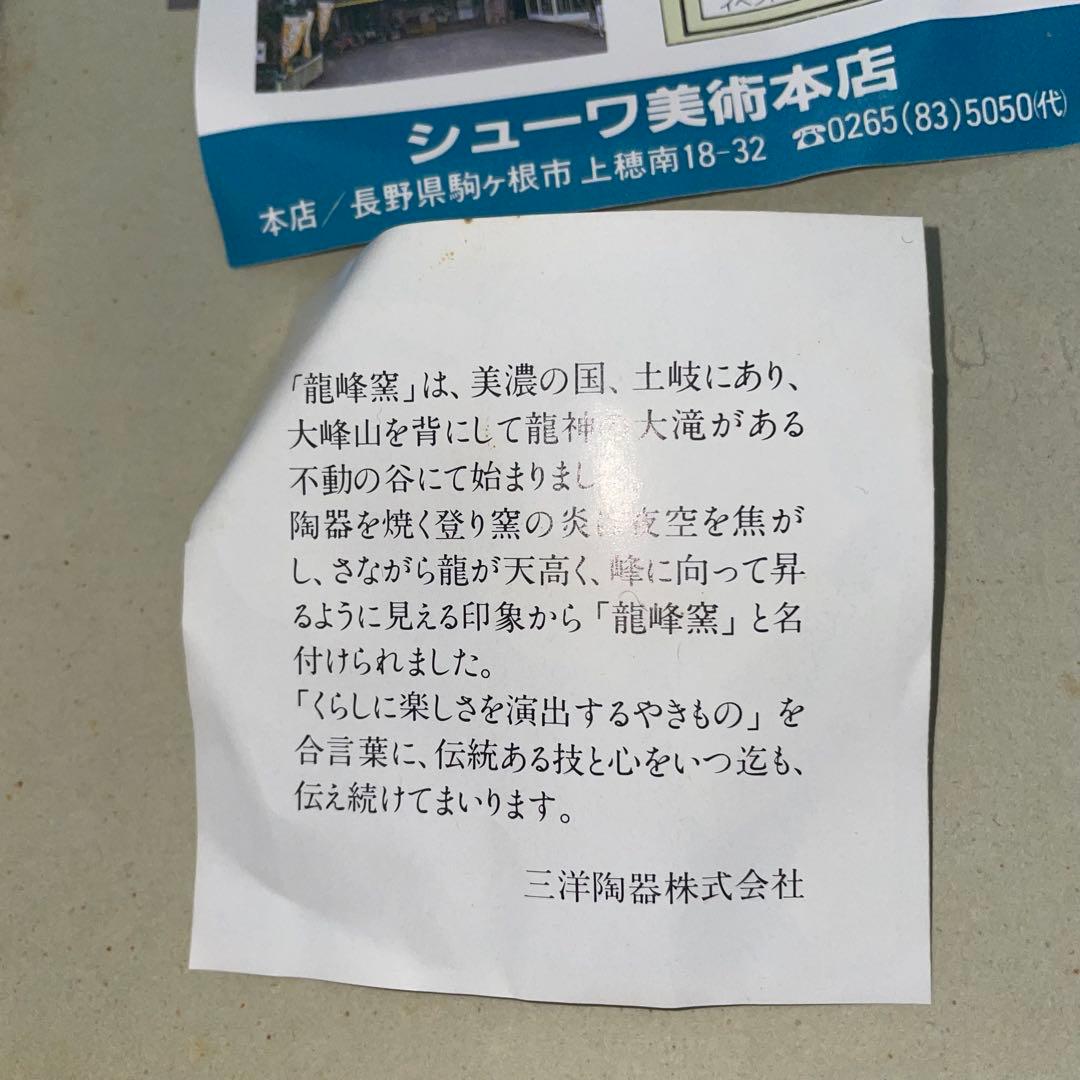 イベント
シューワ美術本店
本店/長野県駒ヶ根市 上穂南18-32 ☎0265(83)5050(代)
「龍峰窯」は、美濃の国、土岐にあり、
大峰山を背にして龍神 大滝がある
不動の谷にて始まりまし
陶器を焼く登り窯の炎 夜空を焦が
し、さながら龍が天高く、峰に向って昇
るように見える印象から「龍峰窯」と名
付けられました。
「くらしに楽しさを演出するやきもの」を
合言葉に、伝統ある技と心をいつ迄も、
伝え続けてまいります。
三洋陶器株式会社